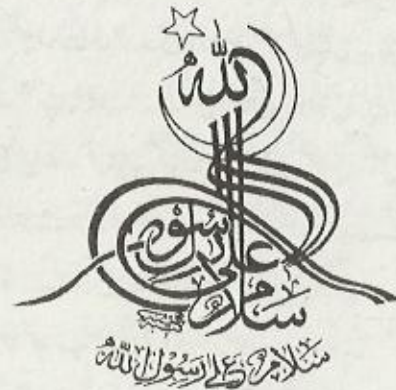 سلام على رسول الله
سلام على رسول الله